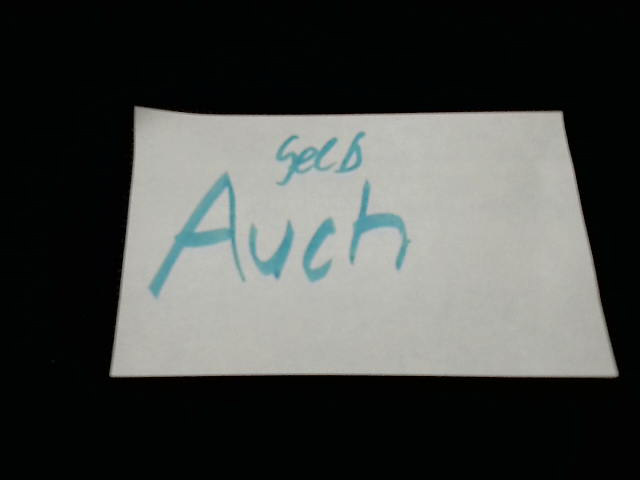 Geld
Auch